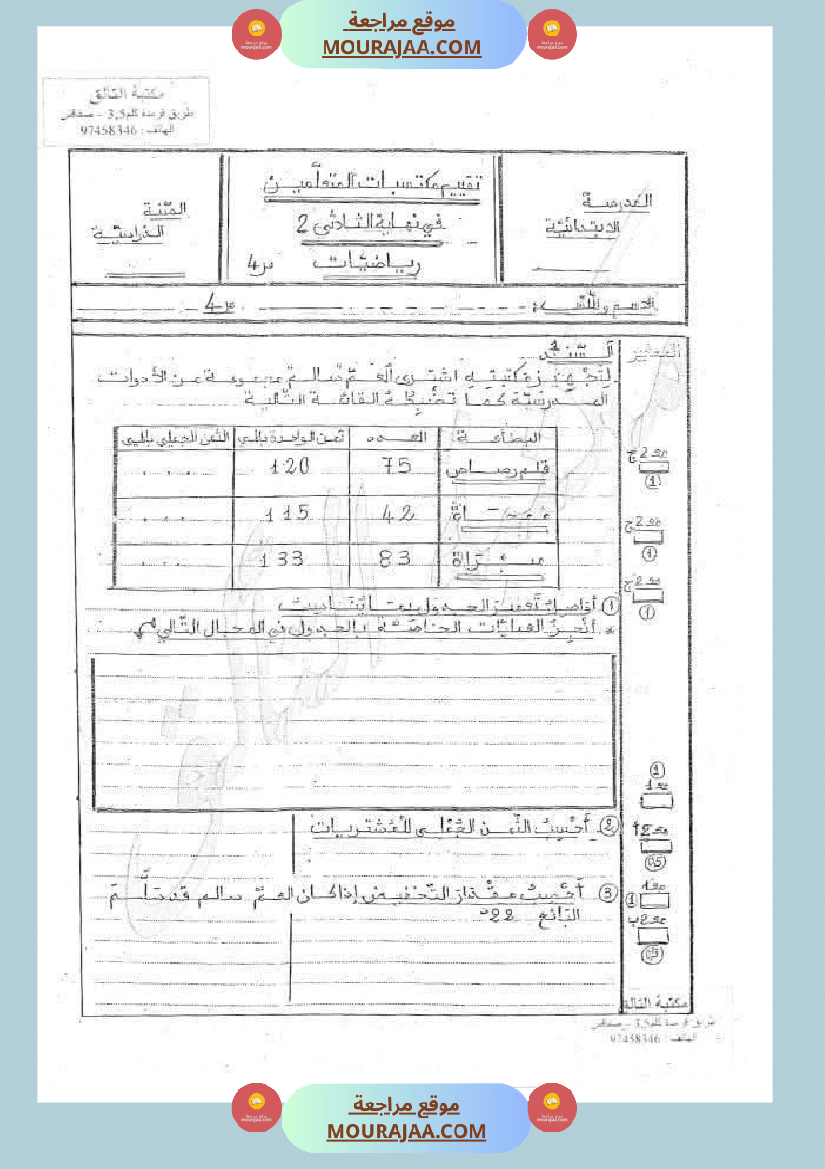 موقع مراجعة
MOURAJAA.COM
طريق قرمدة كلم 3,5 - صفاقس
الهاتف : 97458346
المدرسة
الابتدائية
تقييم مكتسبات المتعلّمين
في نهاية الثلاثي 2
رياضيّات س4
السّنة
الدّراسيّة
الاسم واللّقب: س4
المعايير
السّند 1
لِتَجْهِيزِ مكتبتِهِ اشترى العمّ سالم مجموعة من الأدوات
المدرسيّة كما تضبطه القائمة التّالية
البضاعة العدد ثمن الواحدة بالمي الثّمن الجملي بالمي
قلم رصاص 75 120 ....
ممحاة 42 115 ....
مبراة 83 133 ....
مع2ج
(1)
مع2ج
(1)
مع2ج
(1)
① أواصل تعمير الجدول بما يناسب
* أنجز العمليّات الخاصّة بالجدول في المجال التّالي
② أحسب الثّمن الجملي للمشتريات
③ أحسب مقدار التّخفيض إذا كان العمّ سالم قد سلّم
البائع 22د
مع1
مع1
(0,5)
(1)
مع2ب
(0,5)
مكتبة التالق
طريق قرمدة كلم 3,5 - صفاقس
الهاتف : 97458346
موقع مراجعة
MOURAJAA.COM